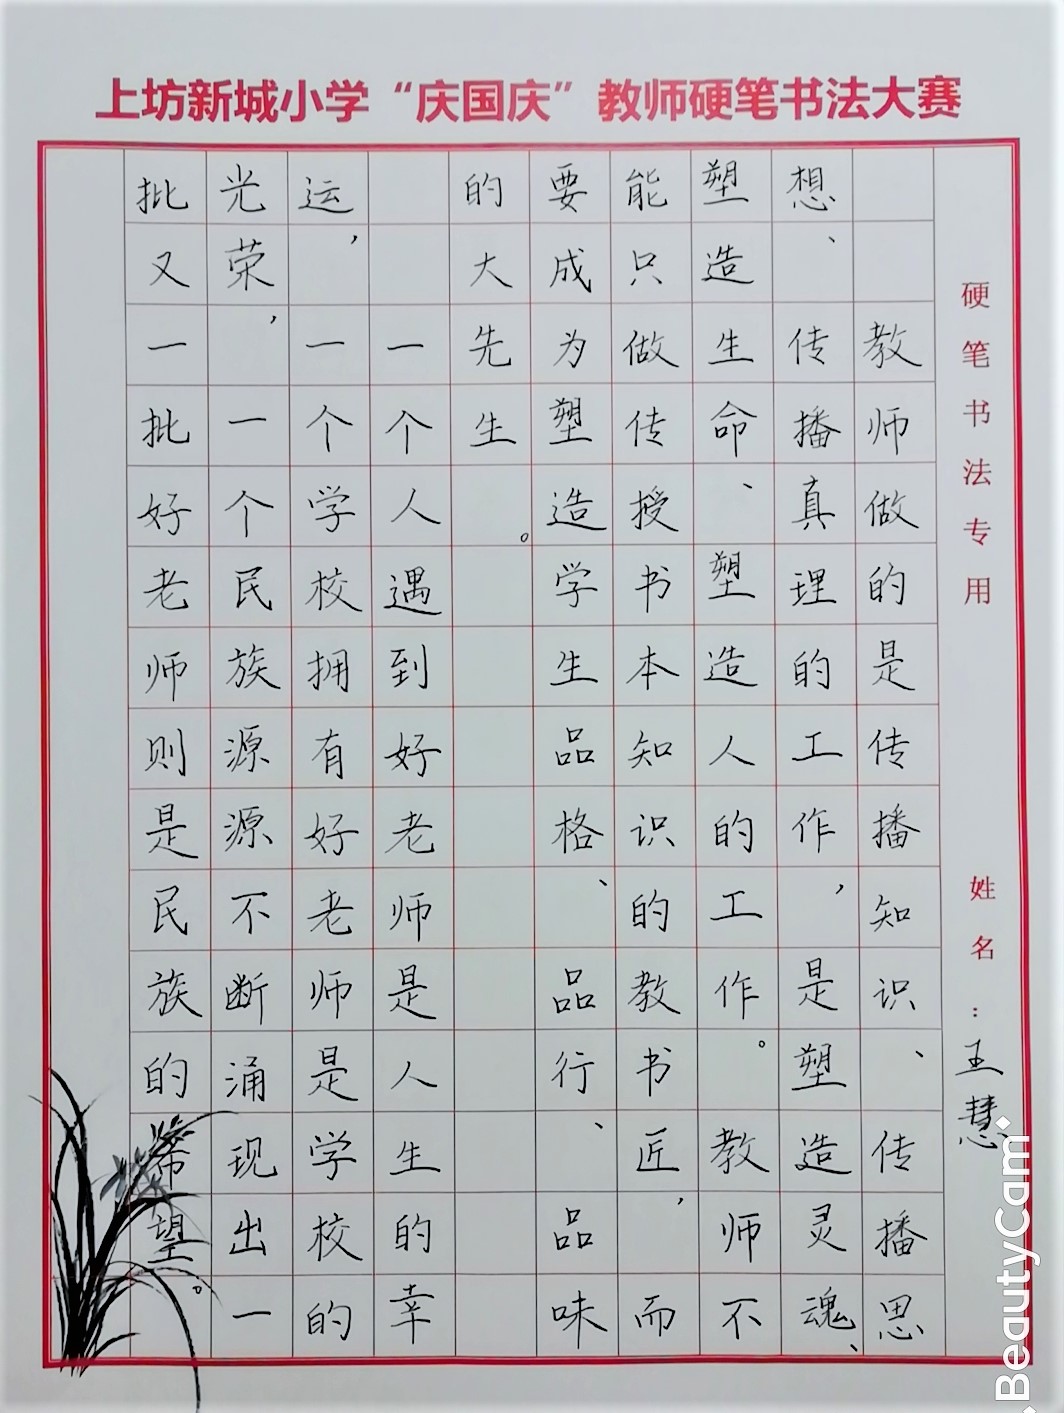 上坊新城小学“庆国庆”教师硬笔书法大赛
硬笔书法专用
姓名：王慧
教师做的是传播知识、传播思
想、传播真理的工作，是塑造灵魂、
塑造生命、塑造人的工作。教师不
能只做传授书本知识的教书匠，而
要成为塑造学生品格、品行、品味
的大先生。
一个人遇到好老师是人生的幸
运，一个学校拥有好老师是学校的
光荣，一个民族源源不断涌现出一
批又一批好老师则是民族的希望。
BeautyCam.